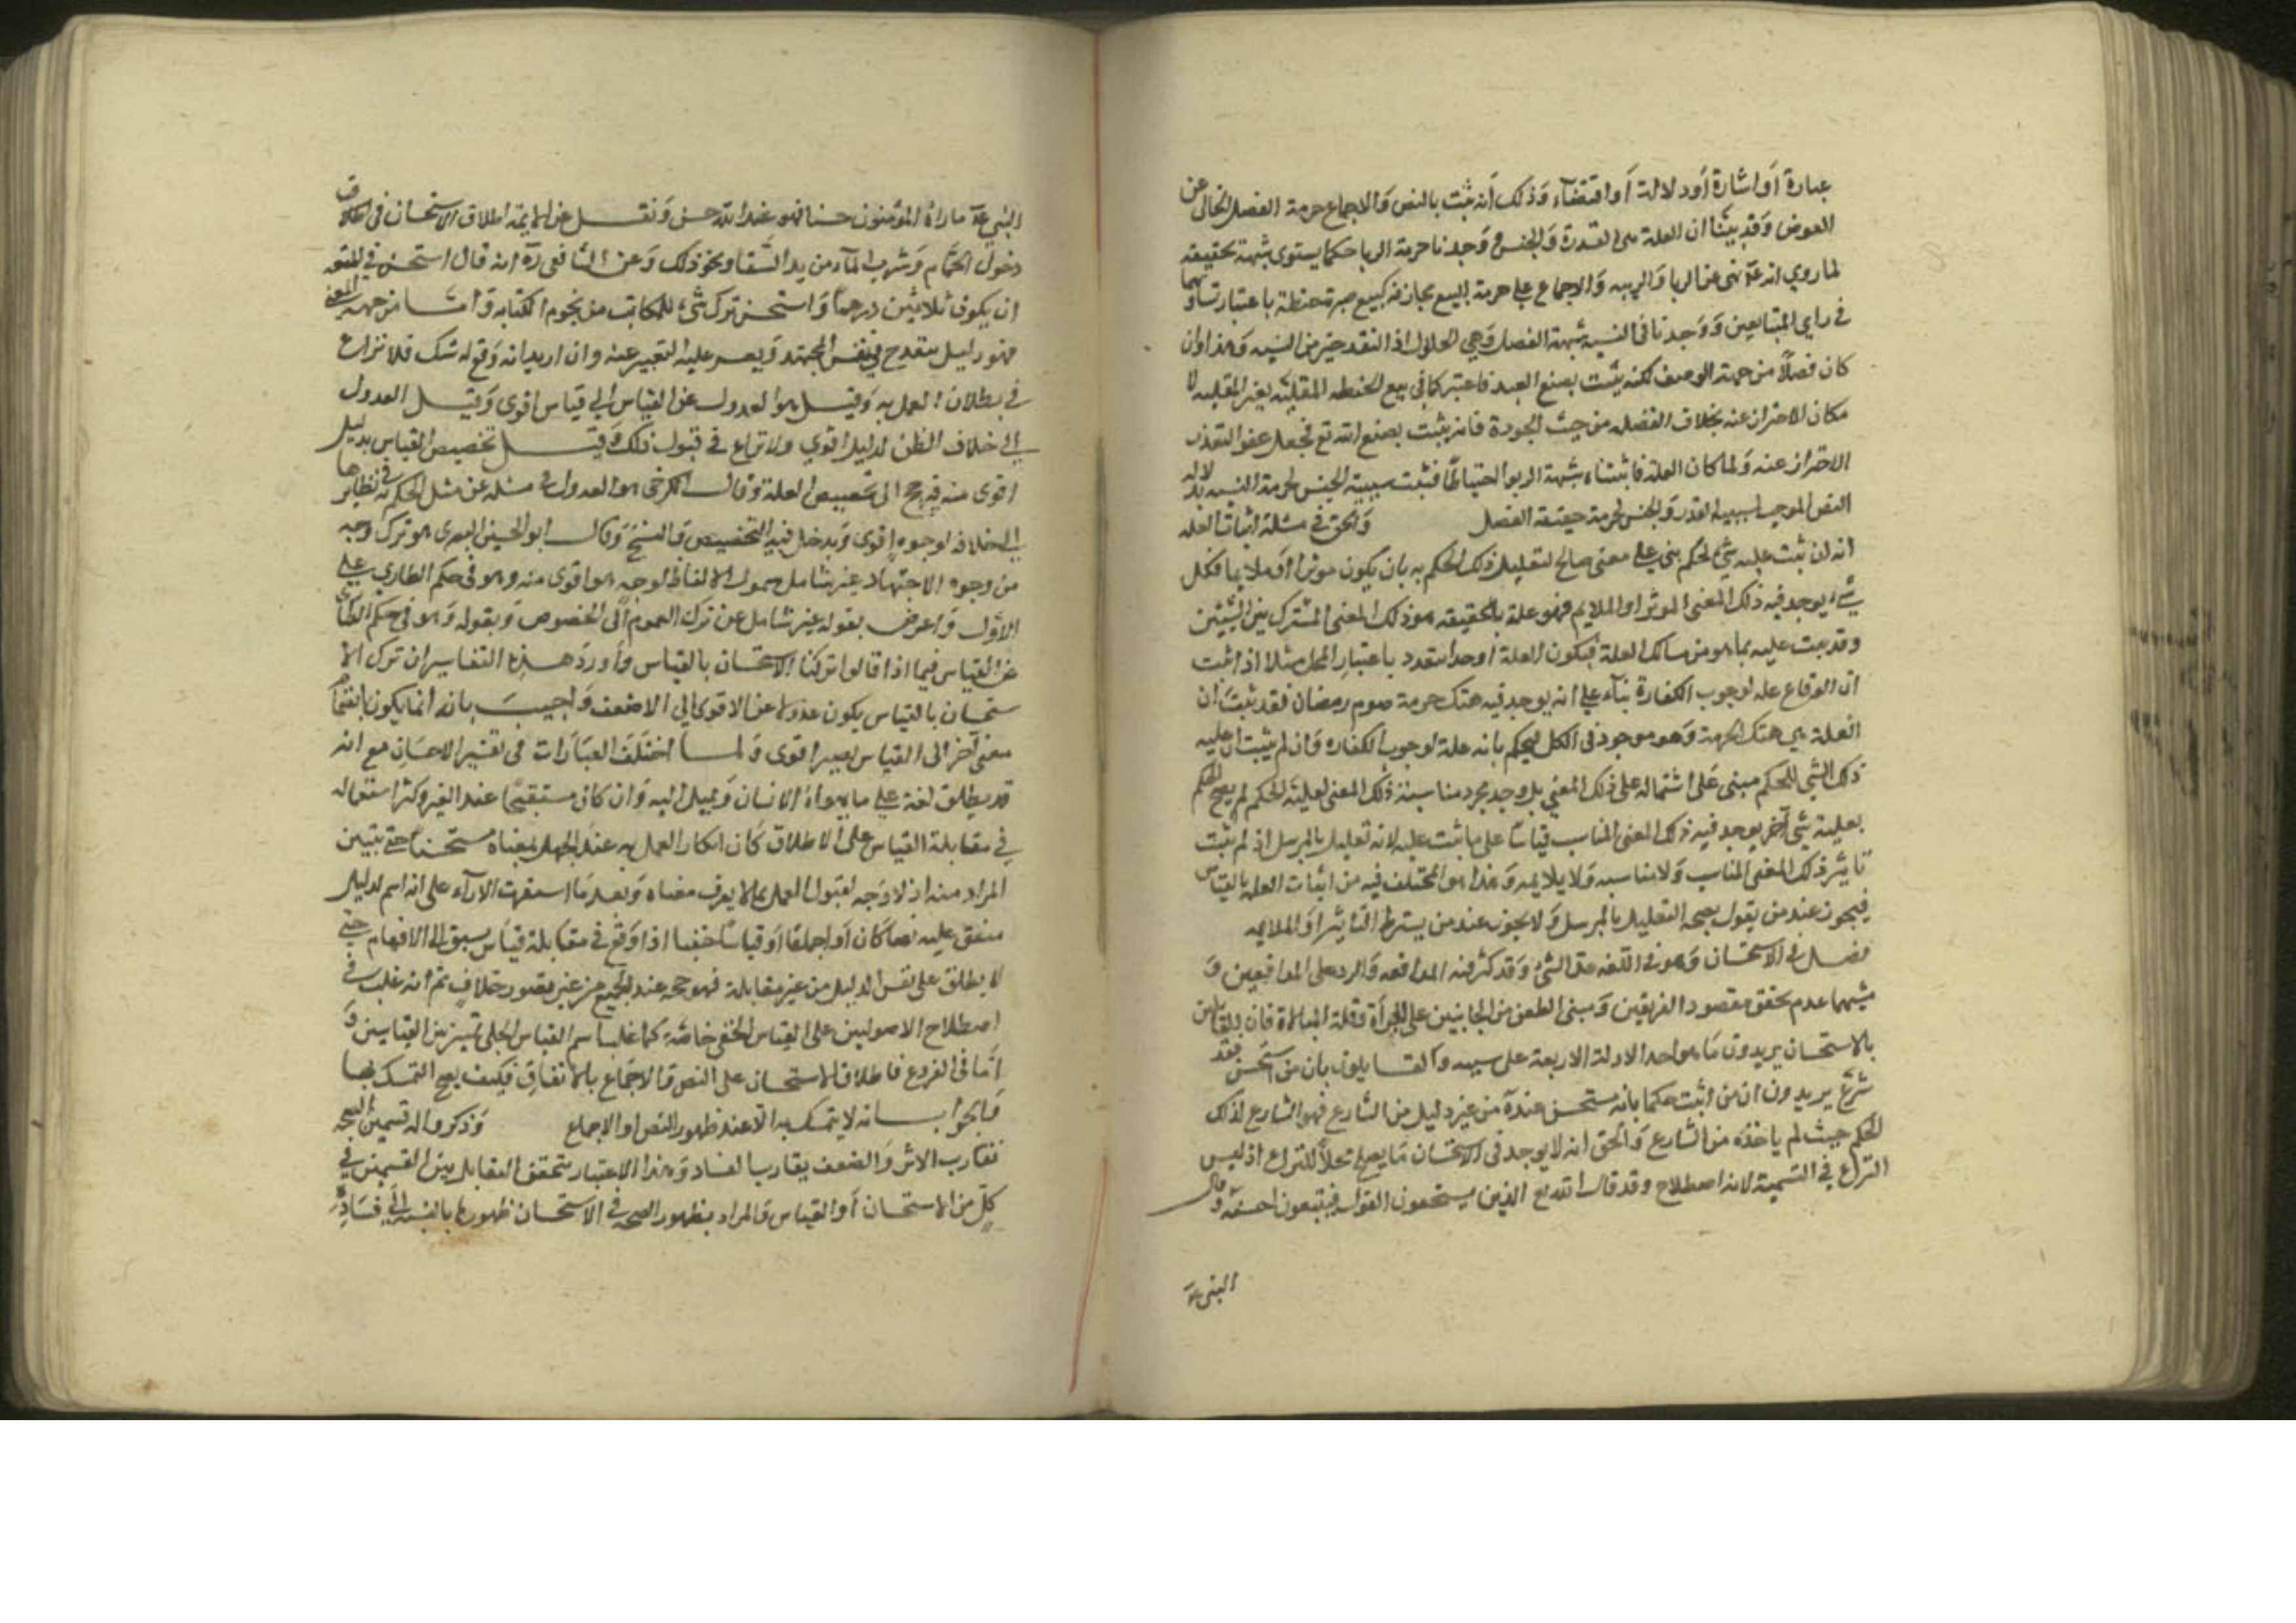 عبارة أو اشارة أو دلالة أو اقتضاء وذلك أنه ثبت بالنص والاجماع حرمة الفضل الخالى عن
العوض وقد بينا ان العلة هى القدرة والجنس وجدنا حرمة الربا حكما يستوى شبهته بحقيقته
لما روي انه عم نهى عن الربا والريبه والاجماع على حرمة البيع مجازفه كبيع صبرة حنطة باعتبار تساويهما
في راي المتبايعين ووجدنا في النسيه شبهة الفضل وهي الحلول اذ النقد خير من النسيه وهذا وان
كان فضلا من جهة الوصف لكنه يثبت بصنع العبد فاعتبر كما في بيع الحنطه المقليه بغير المقليه لا
مكان الاحتراز عنه بخلاف الفضل من حيث الجودة فانه يثبت بصنع الله تع فجعل عفوا لتعذر
الاحتراز عنه ولما كان العلة فاثبتناه شبهة الربوا احتياطا فثبت سببية الجنس لحرمة النسيه بدلالة
النص الموجب لسببيه القدر والجنس لحرمة حقيقة الفضل والحق في مسئلة اثبات العله
انه ان ثبت عليه شئ لحكم بنى على معنى صالح لتعليل ذلك الحكم به بان يكون موثرا أو ملايما فكل
شئ يوجد فيه ذلك المعنى الموثر او الملايم فهو علة بالحقيقه هو ذلك المعنى المشترك بين الشيئين
وقد بعت عليه بما هو من مسالك العلة فيكون العلة اوحدا يتعدد باعتبار المحل مثلا اذا ثبت
ان الوقاع عله لوجوب الكفارة بناء على انه يوجد فيه هتك حرمة صوم رمضان فقد ثبت ان
العلة هي هتك الحرمة وهو موجود في الكل ليحكم بانه علة لوجوب الكفاره وان لم يثبت ان عليه
ذلك الشئ للحكم مبنى على اشتماله على ذلك المعني بل وجد مجرد مناسبة ذلك المعنى لعلية الحكم لم يصح الحكم
بعلية شئ آخر يوجد فيه ذلك المعنى المناسب قياسا على ما ثبت عليه لانه تعليل بالمرسل اذ لم يثبت
تاثير ذلك المعنى المناسب ولا مناسبه ولا يلايمه وهذا هو المختلف فيه من اثبات العله بالقياس
فيجوز عند من يقول بصحه التعليل بالمرسل ولا يجوز عند من يشترط التاثير او الملايمه
فصل في الاستحسان وهو في اللغه عد الشئ وقد كثر فيه المدافعه والرد على المدافعين و
منشؤهما عدم تحقق مقصود الفريقين ومبنى الطعن من الجانبين على الجرأة وقلة المبالاة فان القائلين
بالاستحسان يريدون ما هو احد الادلة الاربعة على سببه والقايلون بان من استحسن فقد
شرع يريدون ان من اثبت حكما بانه مستحسن عنده من غير دليل من الشارع فهو الشارع لذلك
الحكم حيث لم ياخذه من الشارع والحق انه لا يوجد في الاستحسان ما يصلح محلا للنزاع اذ ليس
النزاع في التسمية لانه اصطلاح وقد قال الله تع الذين يستمعون القول فيتبعون احسنه وقال
النبي عم
النبي عم ما راه المؤمنون حسنا فهو عند الله حسن ونقل عن الايمة اطلاق الاستحسان في
دخول الحمام وشرب المآء من يد السقا ونحو ذلك وعن الشافعي ره انه قال استحسن في المتعه
ان يكون ثلاثين درهما واستحسن ترك شئ للمكاتب من نجوم الكتابة واما من جهه المعنى
فهو دليل ينقدح في نفس المجتهد ويعسر عليه التعبير عنه وان اريد انه وقع له شك فلا نزاع
في بطلان العمل به وقيل هو العدول عن القياس الى قياس اقوى وقيل العدول
الى خلاف الظن لدليل اقوي ولا نزاع في قبول ذلك وقيل تخصيص القياس بدليل
اقوى منه فيرجع الى تخصيص العلة وقال الكرخى هو العدول في مسئله عن مثل الحكم به في نظايرها
الى خلافه لوجوه اقوى ويدخل فيه التخصيص والنسخ وقال ابو الحسين البصرى هو ترك وجه
من وجوه الاجتهاد غير شامل شمول الالفاظ لوجه هو اقوى منه وهو في حكم الطاري على
الاول واعرض بقوله غير شامل عن ترك العموم الى الخصوص وبقوله وهو في حكم الطاري
عن القياس فيما اذا قالوا تركنا الاستحسان بالقياس وأورد هذه التفاسير ان ترك الا
ستحسان بالقياس يكون عدولا عن الاقوى الى الاضعف واجيب بانه انما يكون بانضمام
معنى آخر الى القياس يصير اقوى ولما اختلف العبارات في تفسير الاحسان مع انه
قد يطلق لغة على ما يهواه الانسان ويميل اليه وان كان مستقبحا عند الغير وكثر استعماله
في مقابلة القياس على الاطلاق كان انكار العمل به عند الجهل بمعناه مستحسنا حتى يتبين
المراد منه اذ لا وجه لقبول العمل بما لا يعرف معناه وبعد ما استقرت الارآء على انه اسم لدليل
متفق عليه نصا كان أو اجماعا أو قياسا خفيا اذا وقع في مقابلة قياس سبق الى الافهام حتى
لا يطلق على نفس الدليل من غير مقابلة فهو حجه عند الجميع من غير تصور خلاف ثم انه غلب في
اصطلاح الاصوليين على القياس الخفى خاصة كما غلب اسم القياس الجلى تمييز بين القياسين و
أما في الفروع فاطلاق الاستحسان على النص والاجماع بالاتفاق فكيف يصح التمسك بها
والجواب انه لا يتمسك به الا عند ظهور النص او الاجماع وذكروا له قسمين
تقارب الاثر والضعف يقارب الفساد وهذا الاعتبار يتحقق التقابل بين القسمين في
كل من الاستحسان أو القياس والمراد بظهور الصحه في الاستحسان ظهورها بالنسبه الى فساده